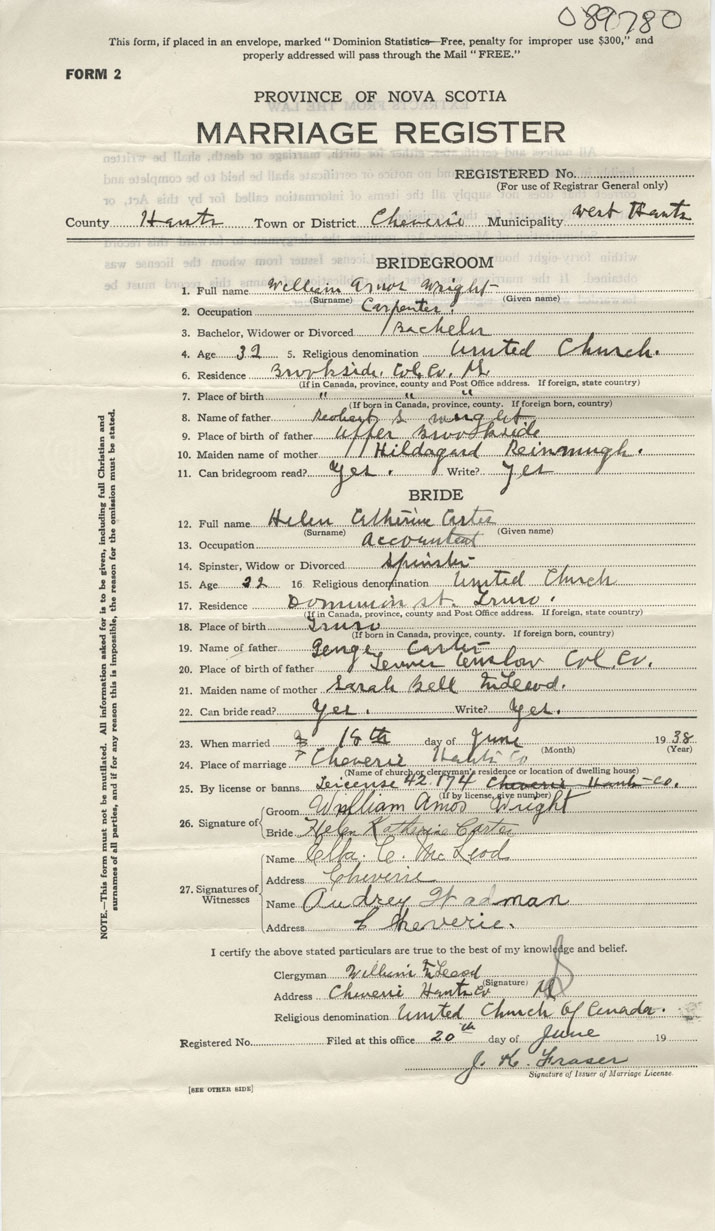 089780
This form, if placed in an envelope, marked "Dominion Statistics—Free, penalty for improper use $300," and
properly addressed will pass through the Mail "FREE."
FORM 2
PROVINCE OF NOVA SCOTIA
MARRIAGE REGISTER
REGISTERED No.
(For use of Registrar General only)
County Hants Town or District Cheverie Municipality West Hants
BRIDEGROOM
1. Full name William Amos Wright
(Surname) (Given name)
2. Occupation Carpenter.
3. Bachelor, Widower or Divorced Bachelor
4. Age 32 5. Religious denomination United Church.
6. Residence Brookside, Col. Co. N.S.
(If in Canada, province, county and Post Office address. If foreign, state country)
7. Place of birth " " "
(If born in Canada, province, county. If foreign born, country)
8. Name of father Robert S Wright
9. Place of birth of father Upper Brookside
10. Maiden name of mother Hildagard
11. Can bridegroom read? Yes. Write? Yes
BRIDE
12. Full name Helen Catherine Carter
(Surname) (Given name)
13. Occupation Accountant
14. Spinster, Widow or Divorced Spinster
15. Age 22 16. Religious denomination United Church
17. Residence Dominion St. Truro.
(If in Canada, province, county and Post Office address. If foreign, state country)
18. Place of birth Truro
(If born in Canada, province, county. If foreign born, country)
19. Name of father George Carter
20. Place of birth of father Col. Co.
21. Maiden name of mother Sarah Bell McLeod.
22. Can bride read? Yes. Write? Yes.
23. When married 18th day of June 1938
(Month) (Year)
24. Place of marriage Cheverie Hants Co
(Name of church or clergyman's residence or location of dwelling house)
25. By license or banns License 42,174 Cheverie Hants Co.
(If by license, give number)
26. Signature of Groom William Amos Wright
Bride Helen Katherine Carter
27. Signatures of Witnesses
Name Ella. C. McLeod
Address Cheverie
Name Audrey Wadman
Address Cheverie.
I certify the above stated particulars are true to the best of my knowledge and belief.
Clergyman William McLeod
(Signature)
Address Cheverie Hants Co N.S
Religious denomination United Church of Canada.
Registered No. Filed at this office 20th day of June 19
J. K. Fraser
Signature of Issuer of Marriage License.
[SEE OTHER SIDE]
NOTE.—This form must not be mutilated. All information asked for is to be given, including full Christian and
surnames of all parties, and if for any reason this is impossible, the reason for the omission must be stated.